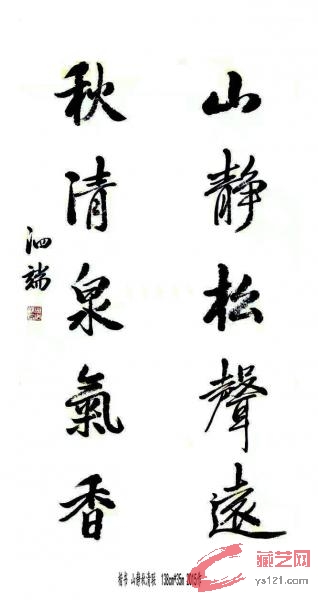 山静松聲遠
秋清泉氣香
泗端
楷书 山静秋清联 138cm*35m 2015年
藏艺网
ys121.com